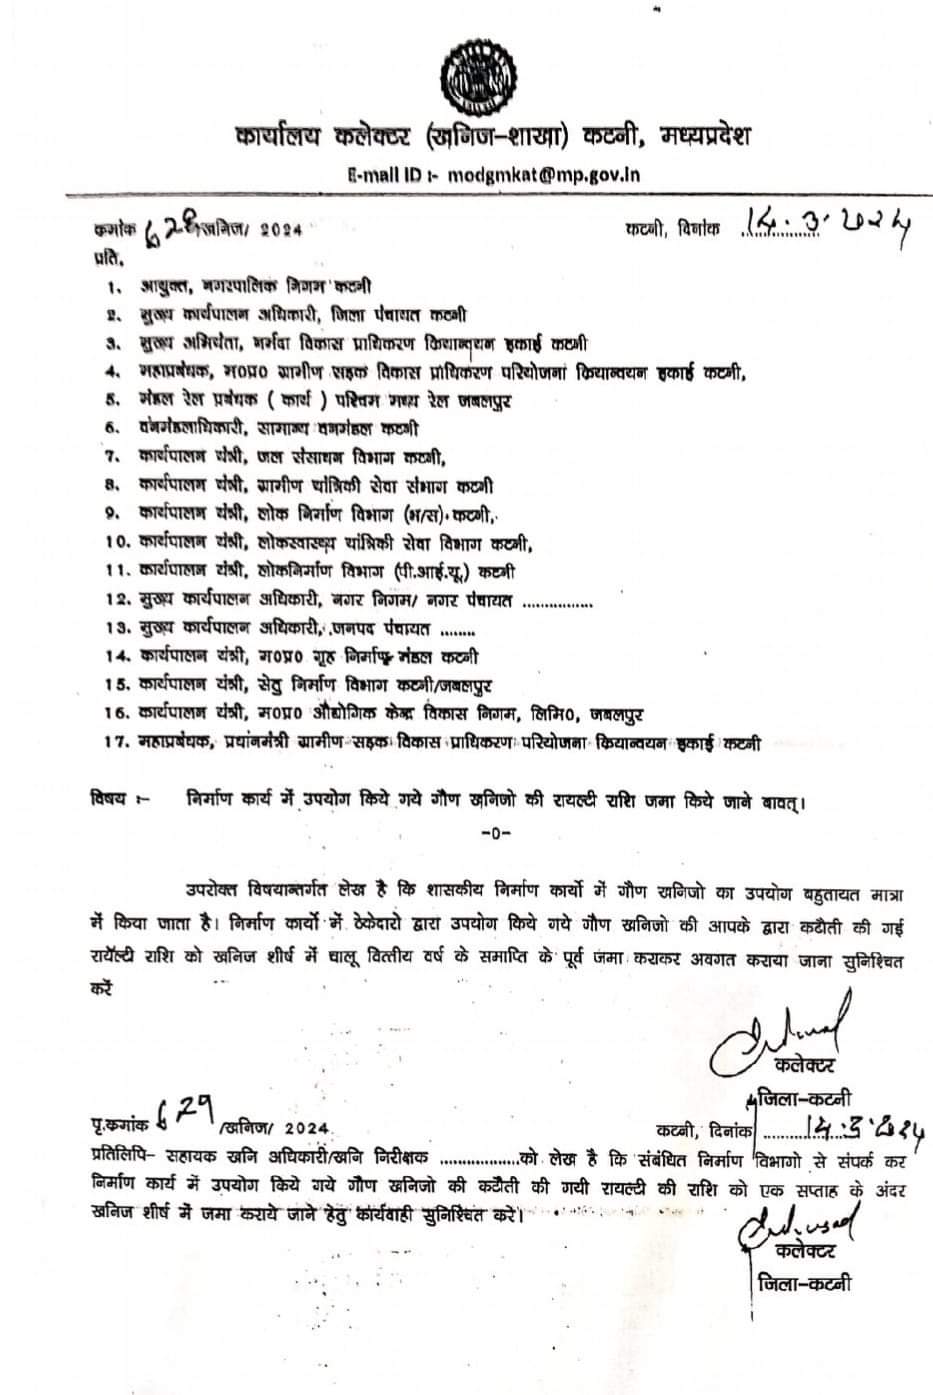 कार्यालय कलेक्टर (खनिज-शाखा) कटनी, मध्यप्रदेश
E-mail ID :- modgmkat@mp.gov.in
कमांक 628/खनिज/ 2024 कटनी, दिनांक 14.3.2024
प्रति,
1. आयुक्त, नगरपालिक निगम कटनी
2. मुख्य कार्यपालन अधिकारी, जिला पंचायत कटनी
3. मुख्य अभियंता, नर्मदा विकास प्राधिकरण कियान्वयन इकाई कटनी
4. महाप्रबंधक, म0प्र0 ग्रामीण सड़क विकास प्राधिकरण परियोजना कियान्वयन इकाई कटनी,
5. मंडल रेल प्रबंधक ( कार्य ) पश्चिम मध्य रेल जबलपुर
6. वनमंडलाधिकारी, सामान्य वनमंडल कटनी
7. कार्यपालन यंत्री, जल संसाधन विभाग कटनी,
8. कार्यपालन यंत्री, ग्रामीण यांत्रिकी सेवा संभाग कटनी
9. कार्यपालन यंत्री, लोक निर्माण विभाग (भ/स) कटनी,
10. कार्यपालन यंत्री, लोकस्वास्थ्य यांत्रिकी सेवा विभाग कटनी,
11. कार्यपालन यंत्री, लोकनिर्माण विभाग (पी.आई.यू.) कटनी
12. मुख्य कार्यपालन अधिकारी, नगर निगम/ नगर पंचायत ................
13. मुख्य कार्यपालन अधिकारी, जनपद पंचायत ........
14. कार्यपालन यंत्री, म0प्र0 गृह निर्माण मंडल कटनी
15. कार्यपालन यंत्री, सेतु निर्माण विभाग कटनी/जबलपुर
16. कार्यपालन यंत्री, म0प्र0 औद्योगिक केन्द्र विकास निगम, लिमि0, जबलपुर
17. महाप्रबंधक, प्रधानमंत्री ग्रामीण सड़क विकास प्राधिकरण परियोजना कियान्वयन इकाई कटनी
विषय :- निर्माण कार्य में उपयोग किये गये गौण खनिजो की रायल्टी राशि जमा किये जाने बावत्।
-0-
उपरोक्त विषयान्तर्गत लेख है कि शासकीय निर्माण कार्यो में गौण खनिजो का उपयोग बहुतायत मात्रा
में किया जाता है। निर्माण कार्यो में ठेकेदारो द्वारा उपयोग किये गये गौण खनिजो की आपके द्वारा कटौती की गई
रायॅल्टी राशि को खनिज शीर्ष में चालू वित्तीय वर्ष के समाप्ति के पूर्व जमा कराकर अवगत कराया जाना सुनिश्चित
करें
कलेक्टर
जिला-कटनी
पृ.कमांक 629 /खनिज/ 2024. कटनी, दिनांक 14.3.2024
प्रतिलिपि- सहायक खनि अधिकारी/खनि निरीक्षक ..................को लेख है कि संबंधित निर्माण विभागो से संपर्क कर
निर्माण कार्य में उपयोग किये गये गौण खनिजो की कटौती की गयी रायल्टी की राशि को एक सप्ताह के अंदर
खनिज शीर्ष में जमा कराये जाने हेतु कार्यवाही सुनिश्चित करें।
कलेक्टर
जिला-कटनी